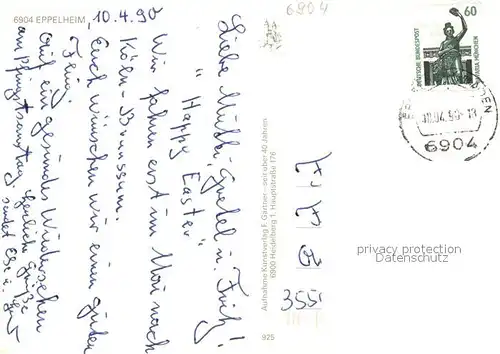 6904 EPPELHEIM
10.4.90
Liebe Mutti, Gretel u. Fritz!
"Happy Easter"
Wir fahren erst im Mai nach
Köln-Brunssum.
Euch wünschen wir einen guten
Feing.
Auf ein gesundes Wiedersehen
am Pfingstsamstag, herzliche Grüße
sendet Else u.
Aufnahme Kunstverlag F. Gärtner – seit über 40 Jahren
6900 Heidelberg 1, Hauptstraße 176
925
6904
3550
60
DEUTSCHE BUNDESPOST
BAVARIA MÜNCHEN
10.04.90-18
6904
privacy protection
Datenschutz